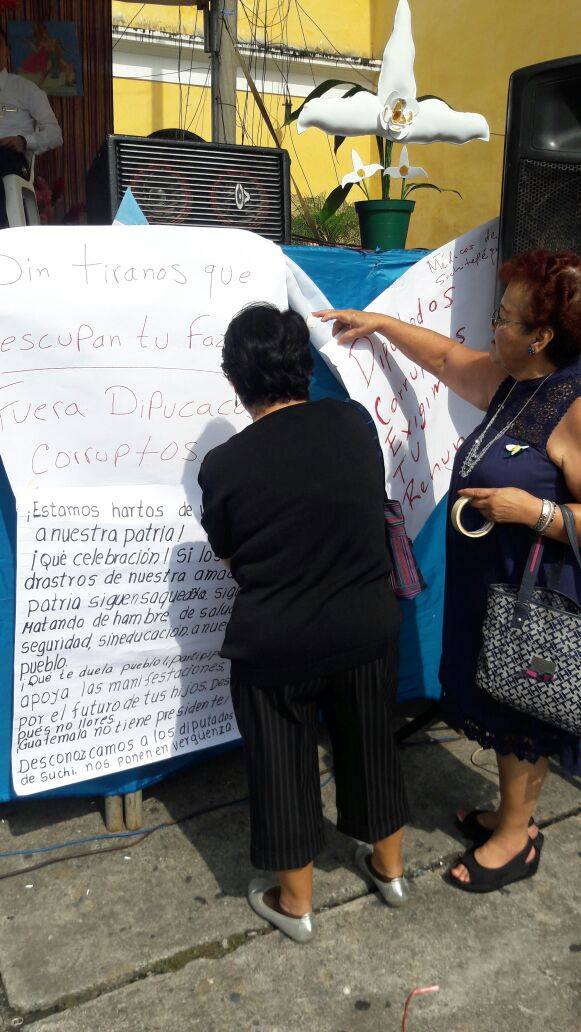 Din tiranos que
escupan tu faz
Fuera Dipucacos
Corruptos
¡Estamos hartos de
a nuestra patria!
¡Qué celebración! Si los
drastros de nuestra amada
patria siguen saqueando, sig
matando de hambre de salud
seguridad, sin educación, a nue
pueblo.
¡Que te duela pueblo!, participa
apoya las manifestaciones,
por el futuro de tus hijos. Des
pués no llores.
Guatemala no tiene presidente!
Desconozcamos a los diputados
de Suchi. nos ponen en vergüenza.
Médicos de
Diputados
Corruptos
Exigimos
Tu
Renun